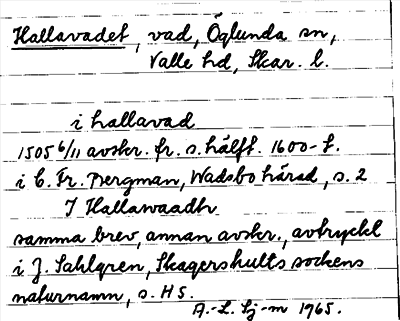 Hallavadet, vad, Öglunda sn,
Valle hd, Skar. l.
i hallavad
1505 6/11 avskr. fr. s. hälft. 1600-t.
i C. Fr. Bergman, Wadsbo härad, s. 2
I Hallawaadh
samma brev, annan avskr., avtryckt
i J. Sahlgren, Skagershults sockens
naturnamn, s. H5.
A.-L. Sj-m 1965.